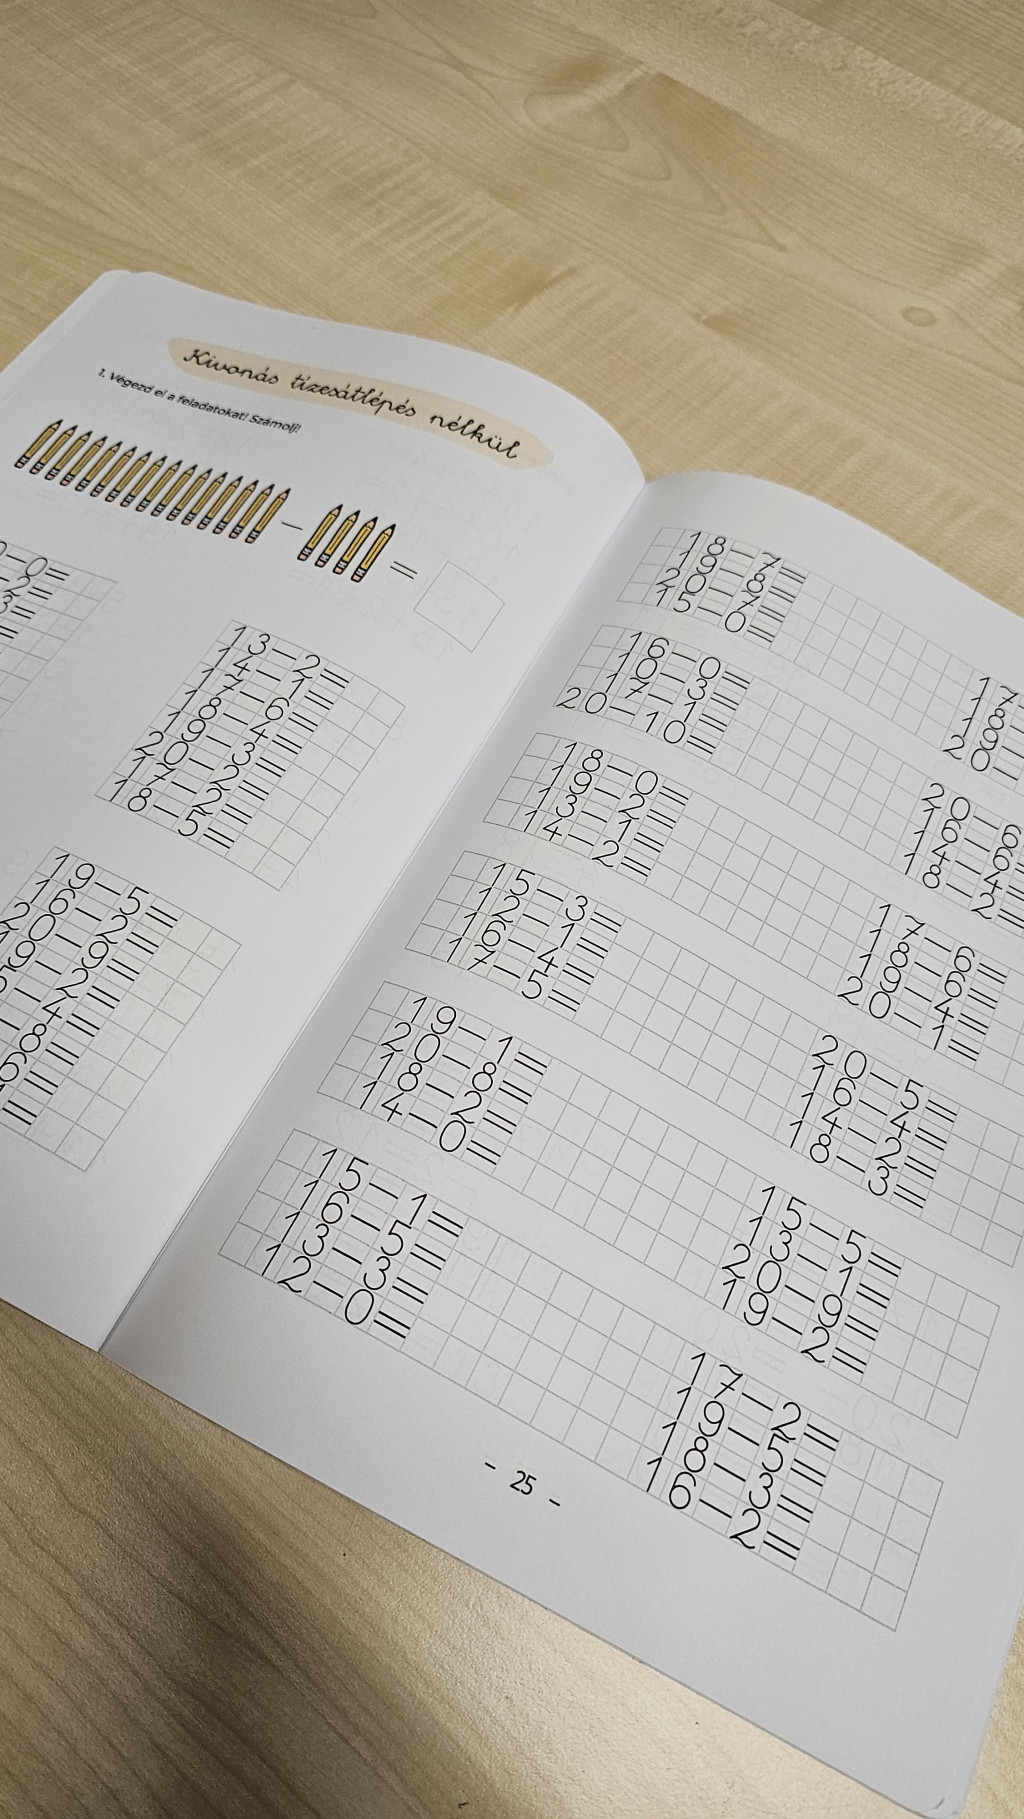 Kivonás tízesátlépés nélkül
1. Végezd el a feladatokat! Számolj!
− =
13−2=
14−1=
17−6=
18−4=
19−3=
20−2=
17−2=
18−5=
19−5=
16−2=
20−9=
19−2=
18−7=
19−8=
20−7=
15−0=
16−0=
10−3=
17−1=
20−10=
18−0=
19−2=
13−1=
14−2=
15−3=
12−1=
16−4=
17−5=
19−1=
20−8=
18−2=
14−0=
15−1=
16−5=
13−3=
12−0=
20−6
16−6
14−4=
18−2=
17−6=
18−6=
19−4=
20−1=
20−5=
16−4=
14−2=
18−3=
15−5=
13−1=
20−9=
19−2=
17−2=
19−5=
18−3=
16−2=
- 25 -